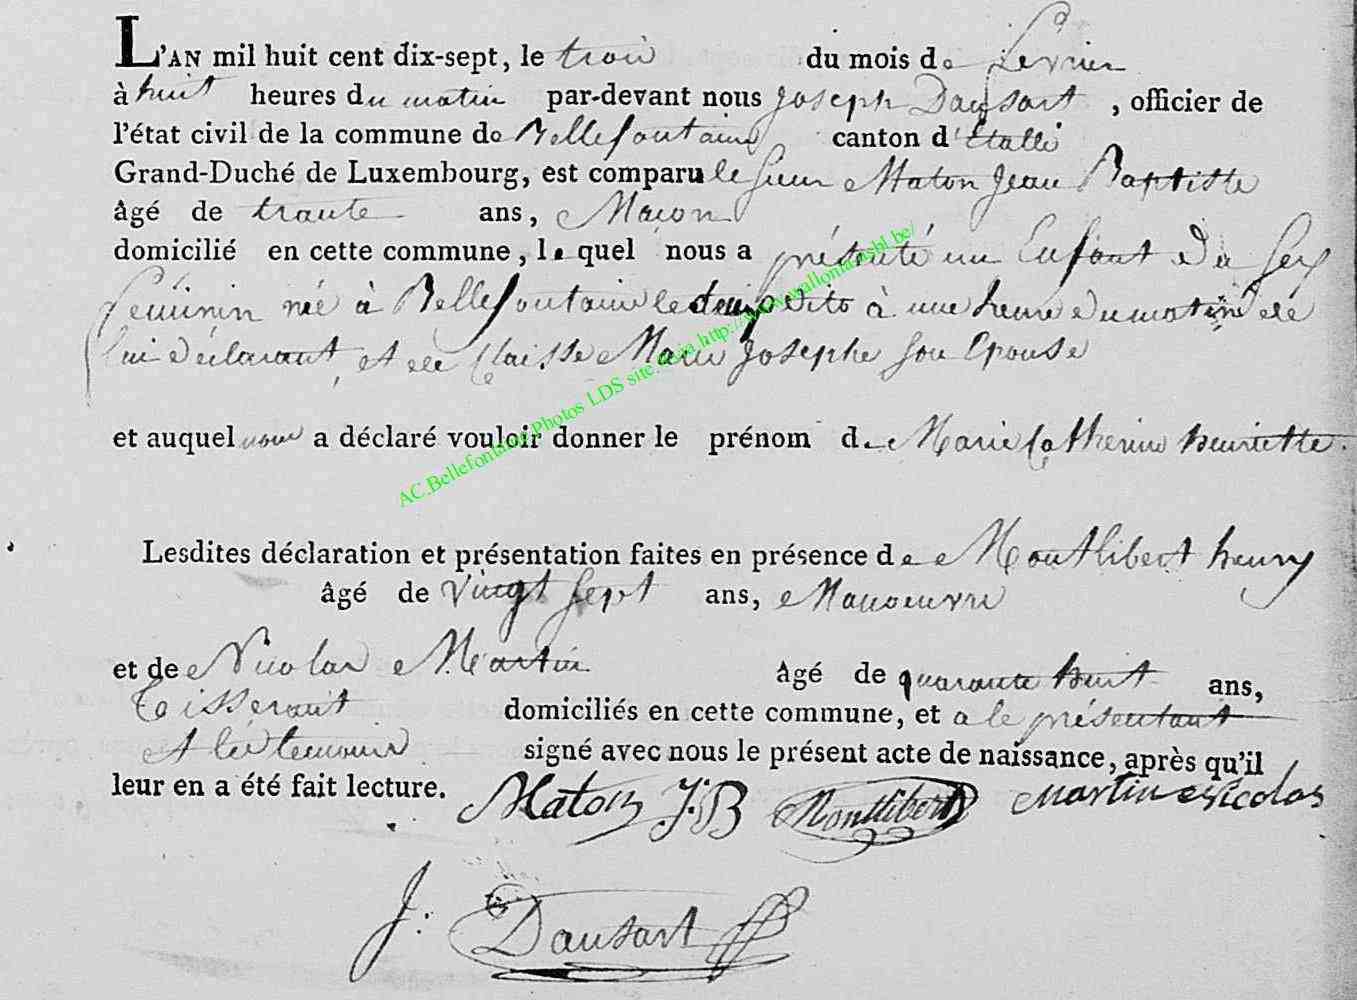 L'AN mil huit cent dix-sept, le trois du mois de Fevrier
à huit heures du matin par-devant nous Joseph Dausart, officier de
l'état civil de la commune de Bellefontaine canton d'Etalle
Grand-Duché de Luxembourg, est comparu le sieur Maton Jean Baptiste
âgé de trante ans, Maçon
domicilié en cette commune, lequel nous a présenté un Enfant du sex
feminin née à Bellefontaine le dito à une heure du matin de
lui déclarant, et de Claisse Marie Josephe son Epouse
et auquel nous a déclaré vouloir donner le prénom de Marie Catherine henriette.
Lesdites déclaration et présentation faites en présence de Montlibert henry
âgé de Vingt Sept ans, Manoeuvre
et de Nicolas Martin âgé de quarante huit ans,
Tisserant domiciliés en cette commune, et a le présentant
et les temoins signé avec nous le présent acte de naissance, après qu'il
leur en a été fait lecture. Maton J:B Montlibert Martin Nicolas
J: Dausart
AC.Bellefontaine.Photos LDS site.geneaja.http://www.wallonia.asbl.be/